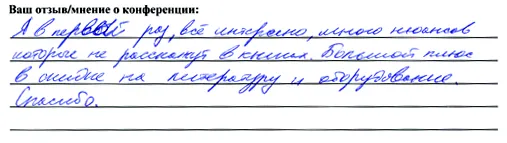 Ваш отзыв/мнение о конференции:
Я в первый раз, всё интересно, много нюансов
которые не расскажут в книгах. Большой плюс
в скидке на литературу и оборудование.
Спасибо.